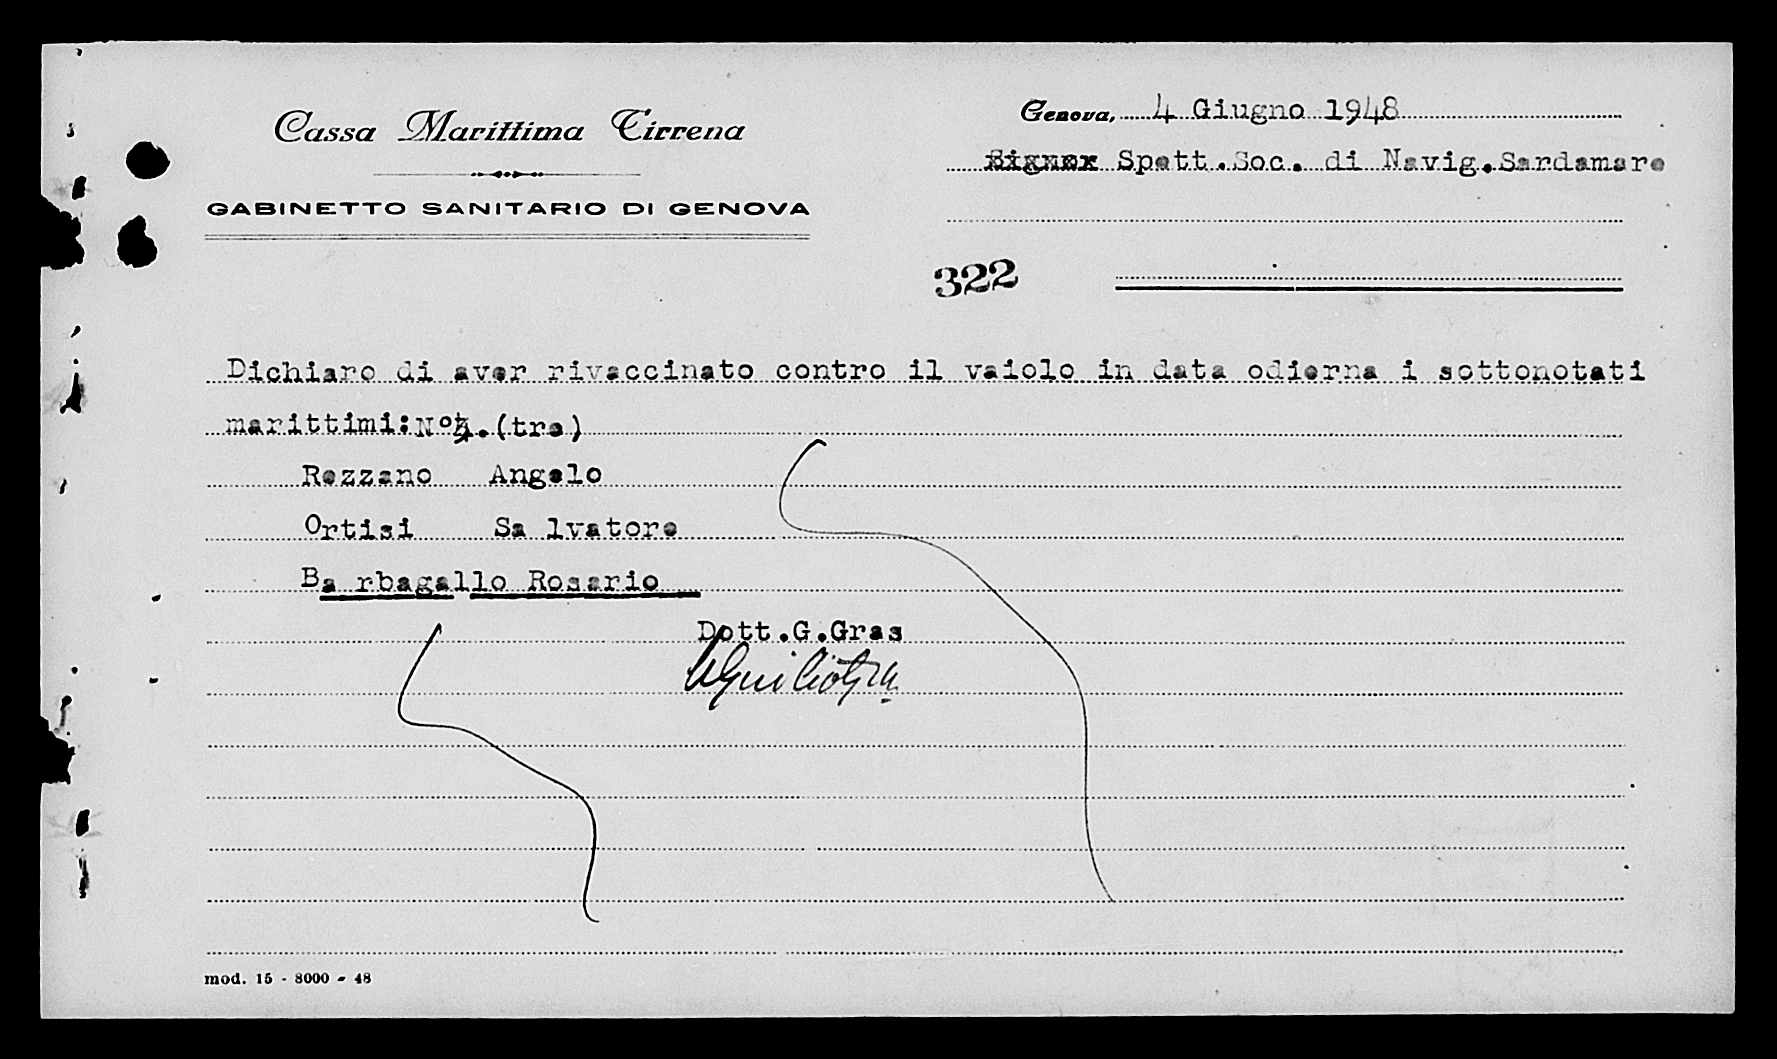 Cassa Marittima Tirrena
GABINETTO SANITARIO DI GENOVA
Genova, 4 Giugno 1948
Signor Spett.Soc. di Navig.Sardamare
322
Dichiaro di aver rivaccinato contro il vaiolo in data odierna i sottonotati
marittimi:N°3.(tre)
Rezzano Angelo
Ortisi Sa lvatore
Ba rbagallo Rosario
Dott.G.Gras
mod. 15 - 8000 - 48